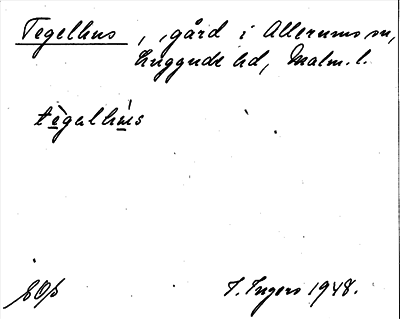 Tegelhus, gård i Allerums sn,
Luggude hd, Malm. l.
tègalhùs
EOp
I. Ingers 1948.